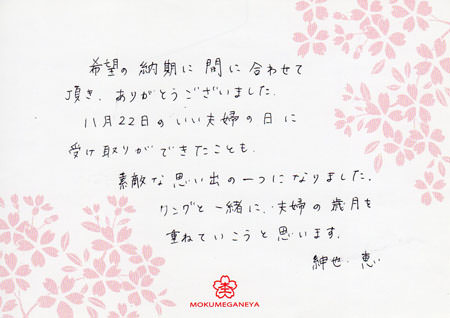 希望の納期に間に合わせて
頂き、ありがとうございました。
11月22日のいい夫婦の日に
受け取りができたことも、
素敵な思い出の一つになりました。
リングと一緒に、夫婦の歳月を
重ねていこうと思います。
紳也・恵
MOKUMEGANEYA